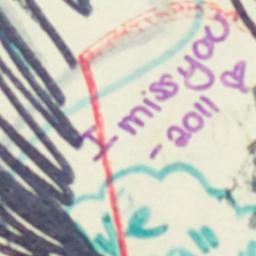 I miss you
- 2011 ♡